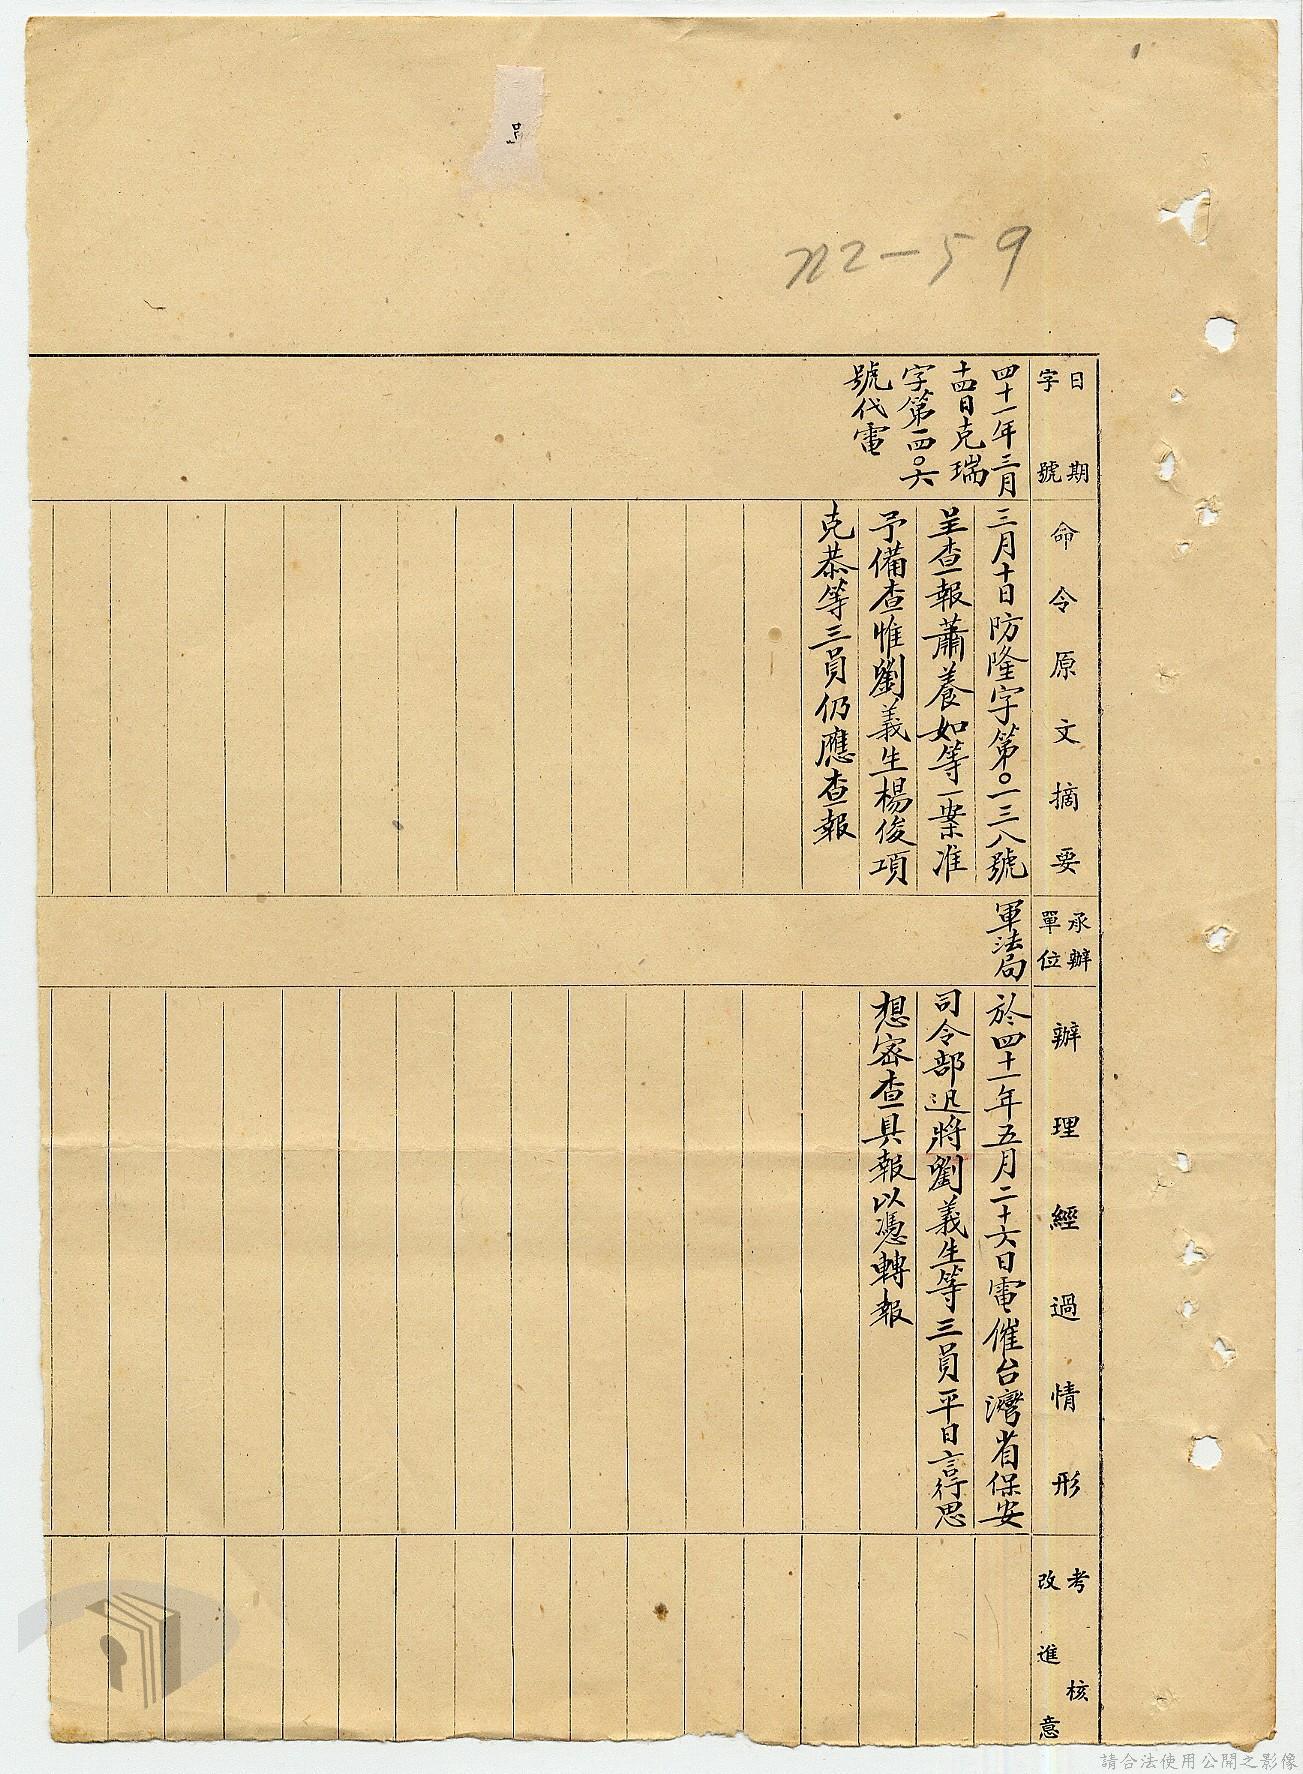 722-59
日期
字號
命令原文摘要
承辦
單位
辦理經過情形
考核
改進意
四十一年三月
十四日克瑞
字第一四〇六
號代電
三月十日防隆字第〇一三八號
呈查報蕭養如等一案准
予備查惟劉義生楊俊項
克恭等三員仍應查報
軍法局
於四十一年五月二十六日電催台灣省保安
司令部迅將劉義生等三員平日言行思
想密查具報以憑轉報
請合法使用公開之影像